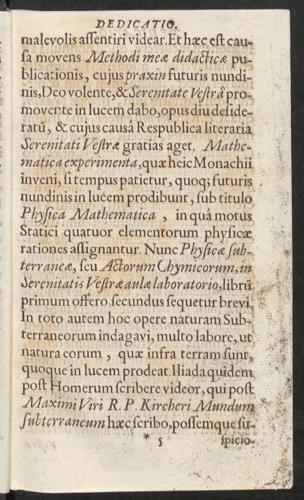 DEDICATIO.
malevolis assentiri videar. Et hæc est cau-
sa movens Methodi meæ didacticæ pu-
blicationis, cujus praxin futuris nundi-
nis, Deo volente, & Serenitate Vestrâ pro-
movente in lucem dabo, opus diu deside-
ratũ, & cujus causâ Respublica literaria
Serenitati Vestræ gratias aget. Mathe-
matica experimenta, quæ heic Monachii
inveni, si tempus patietur, quoq; futuris
nundinis in lucem prodibunt, sub titulo
Physica Mathematica, in quâ motus
Statici quatuor elementorum physicæ
rationes assignantur. Nunc Physicæ sub-
terraneæ, seu Actorum Chymicorum, in
Serenitatis Vestræ aulæ laboratorio, librũ
primum offero, secundus sequetur brevi.
In toto autem hoc opere naturam Sub-
terraneorum indagavi, multo labore, ut
natura eorum, quæ infra terram sunt,
quoque in lucem prodeat. Iliada quidem
post Homerum scribere videor, qui post
Maximi Viri R. P. Kircheri Mundum
subterraneum hæc scribo, possemque su-
* 5 spicio-